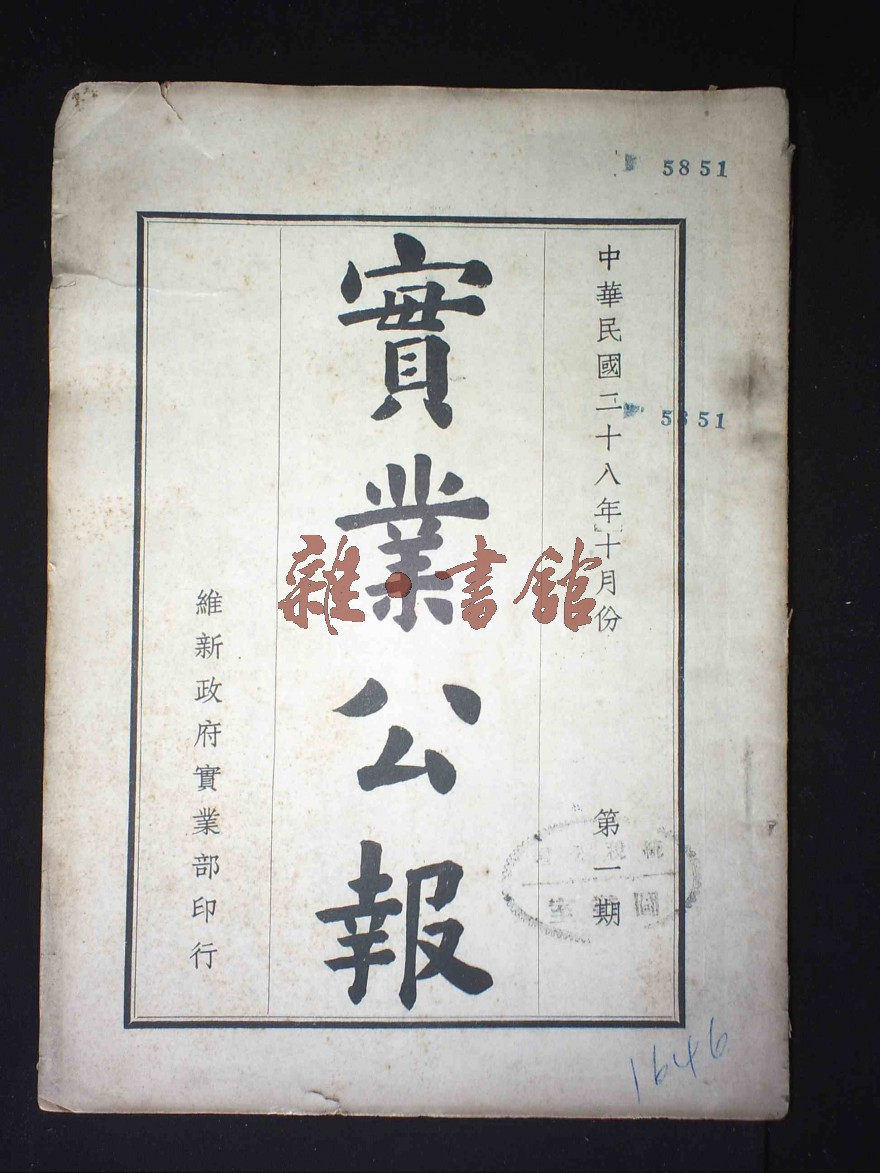 5851
中華民國二十八年十月份
5851
第一期
實業公報
雜·書館
維新政府實業部印行
圖 室
1646